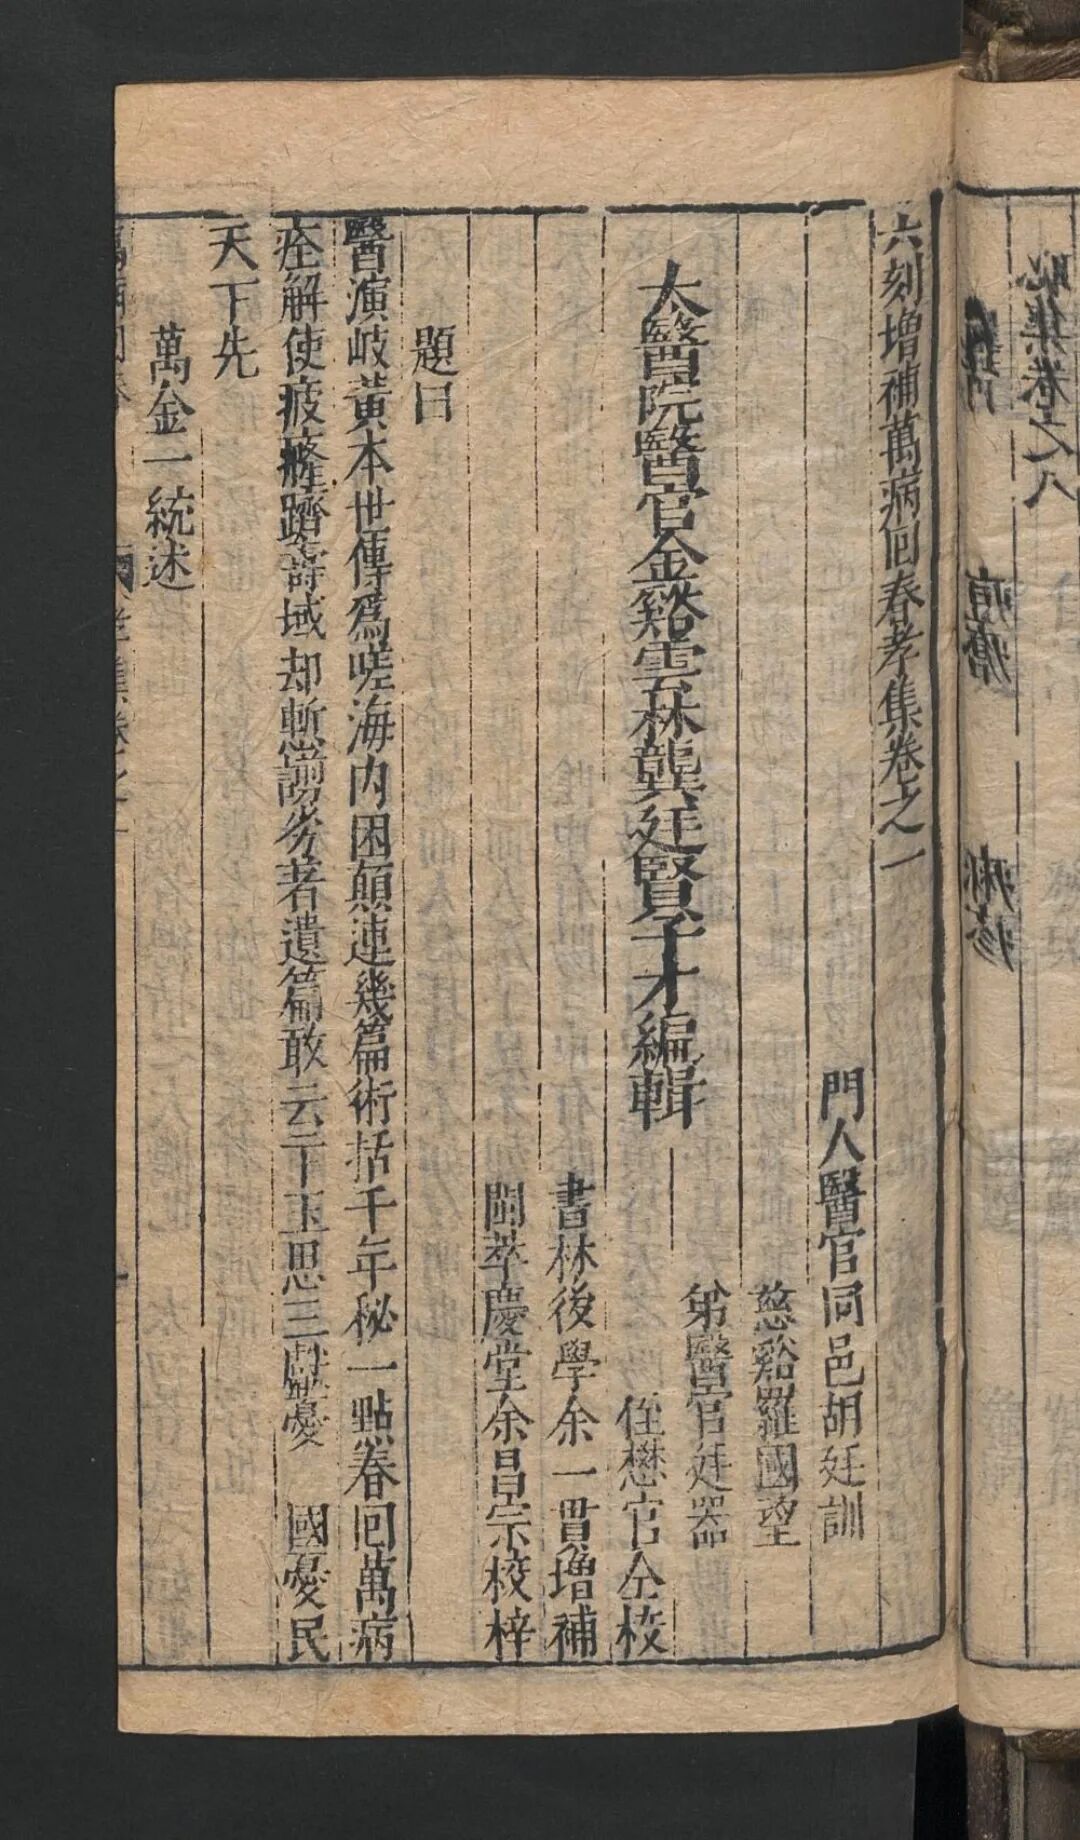 恥集卷之八
痘瘡　麻疹
六刻增補萬病囬春孝集卷之一
門人醫官同邑胡廷訓
慈谿羅國望
弟醫官廷器
太醫院醫官金谿雲林龔廷賢子才編輯
侄懋官仝校
書林後學余一貫增補
閩萃慶堂余昌宗校梓
題曰
醫演岐黃本世傳爲嗟海內困顛連幾篇術括千年秘一點春囬萬病
痊解使疲癃躋壽域却慙謭劣著遺篇敢云干玉思三獻憂　國憂民
天下先
萬金一統述